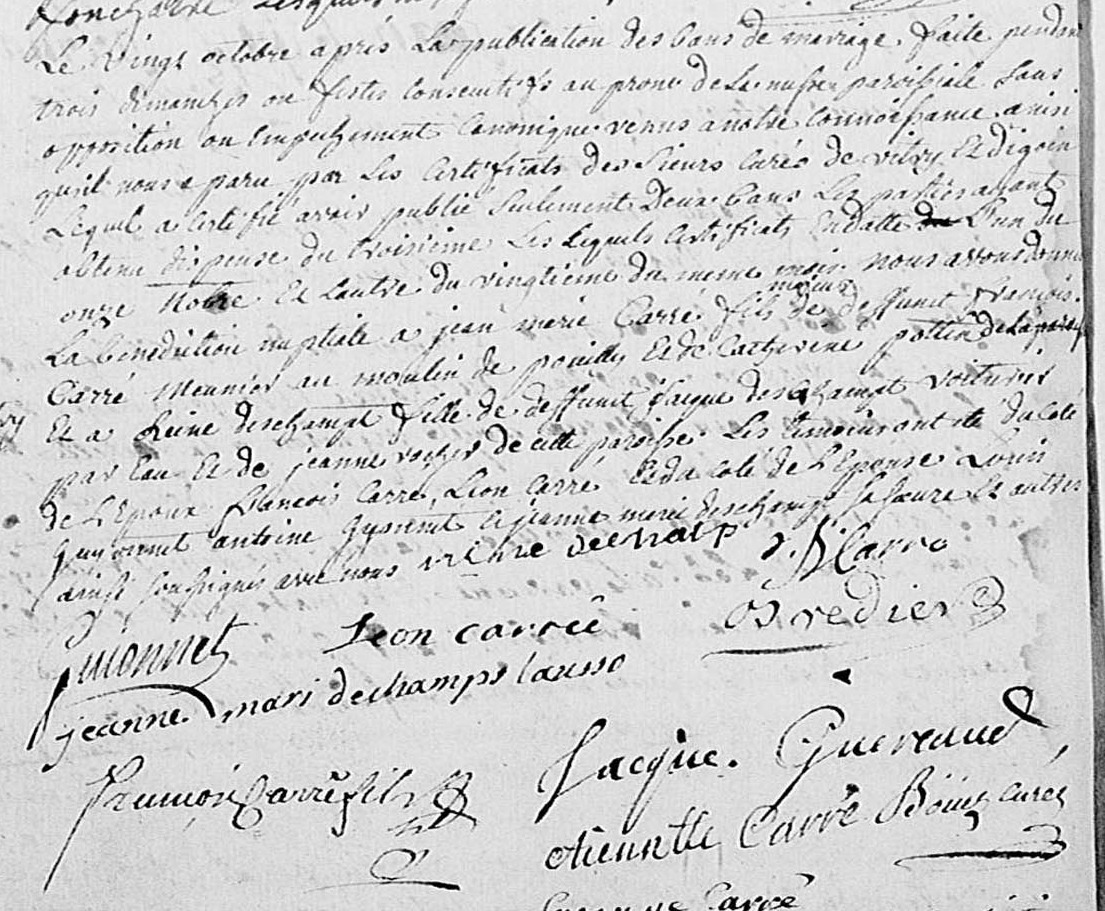 Le vingt octobre apres La publication des bans de mariage faite pendant
trois dimanches ou festes Consecutifs au prone de la messe paroissiale sans
opposition ou Empechement Canonique venus a notre Connoissance ainsi
qu'il nous a paru par Les Certificats des Sieurs Curés de vitry Et digoin
Lequel a Certifié avoir publié seulement Deux bans Les parties ayant
obtenu dispense du troisieme Les lequels Certificats En datte L'un du
onze notre Et l'autre du vingtieme du meme mois nous avons donné
La benediction nuptiale a jean marie Carré fils mineur de deffunt francois
Carré meunier au moulin de pouilly Et de Catherine pottin de La
Et a Reine deschampt fille de deffunt jacque deschampt voiturier
par Eau Et de jeanne rocher de cette paroisse Les temoins ont été du Coté
de L'Epoux francois Carré, Leon Carré Et du Coté de L'Epouse Louis
Guyonnet antoine Guyonnet Et jeanne marie deschampt sa soeure Et autres
ainsi soussignés avec nous reine dechamp J. M Carré
Guionnet Leon carré Bredier
jeanne mari dechamps
francois Carré fils Jacque. Guereaud
etiennette Carré Curé
Carré